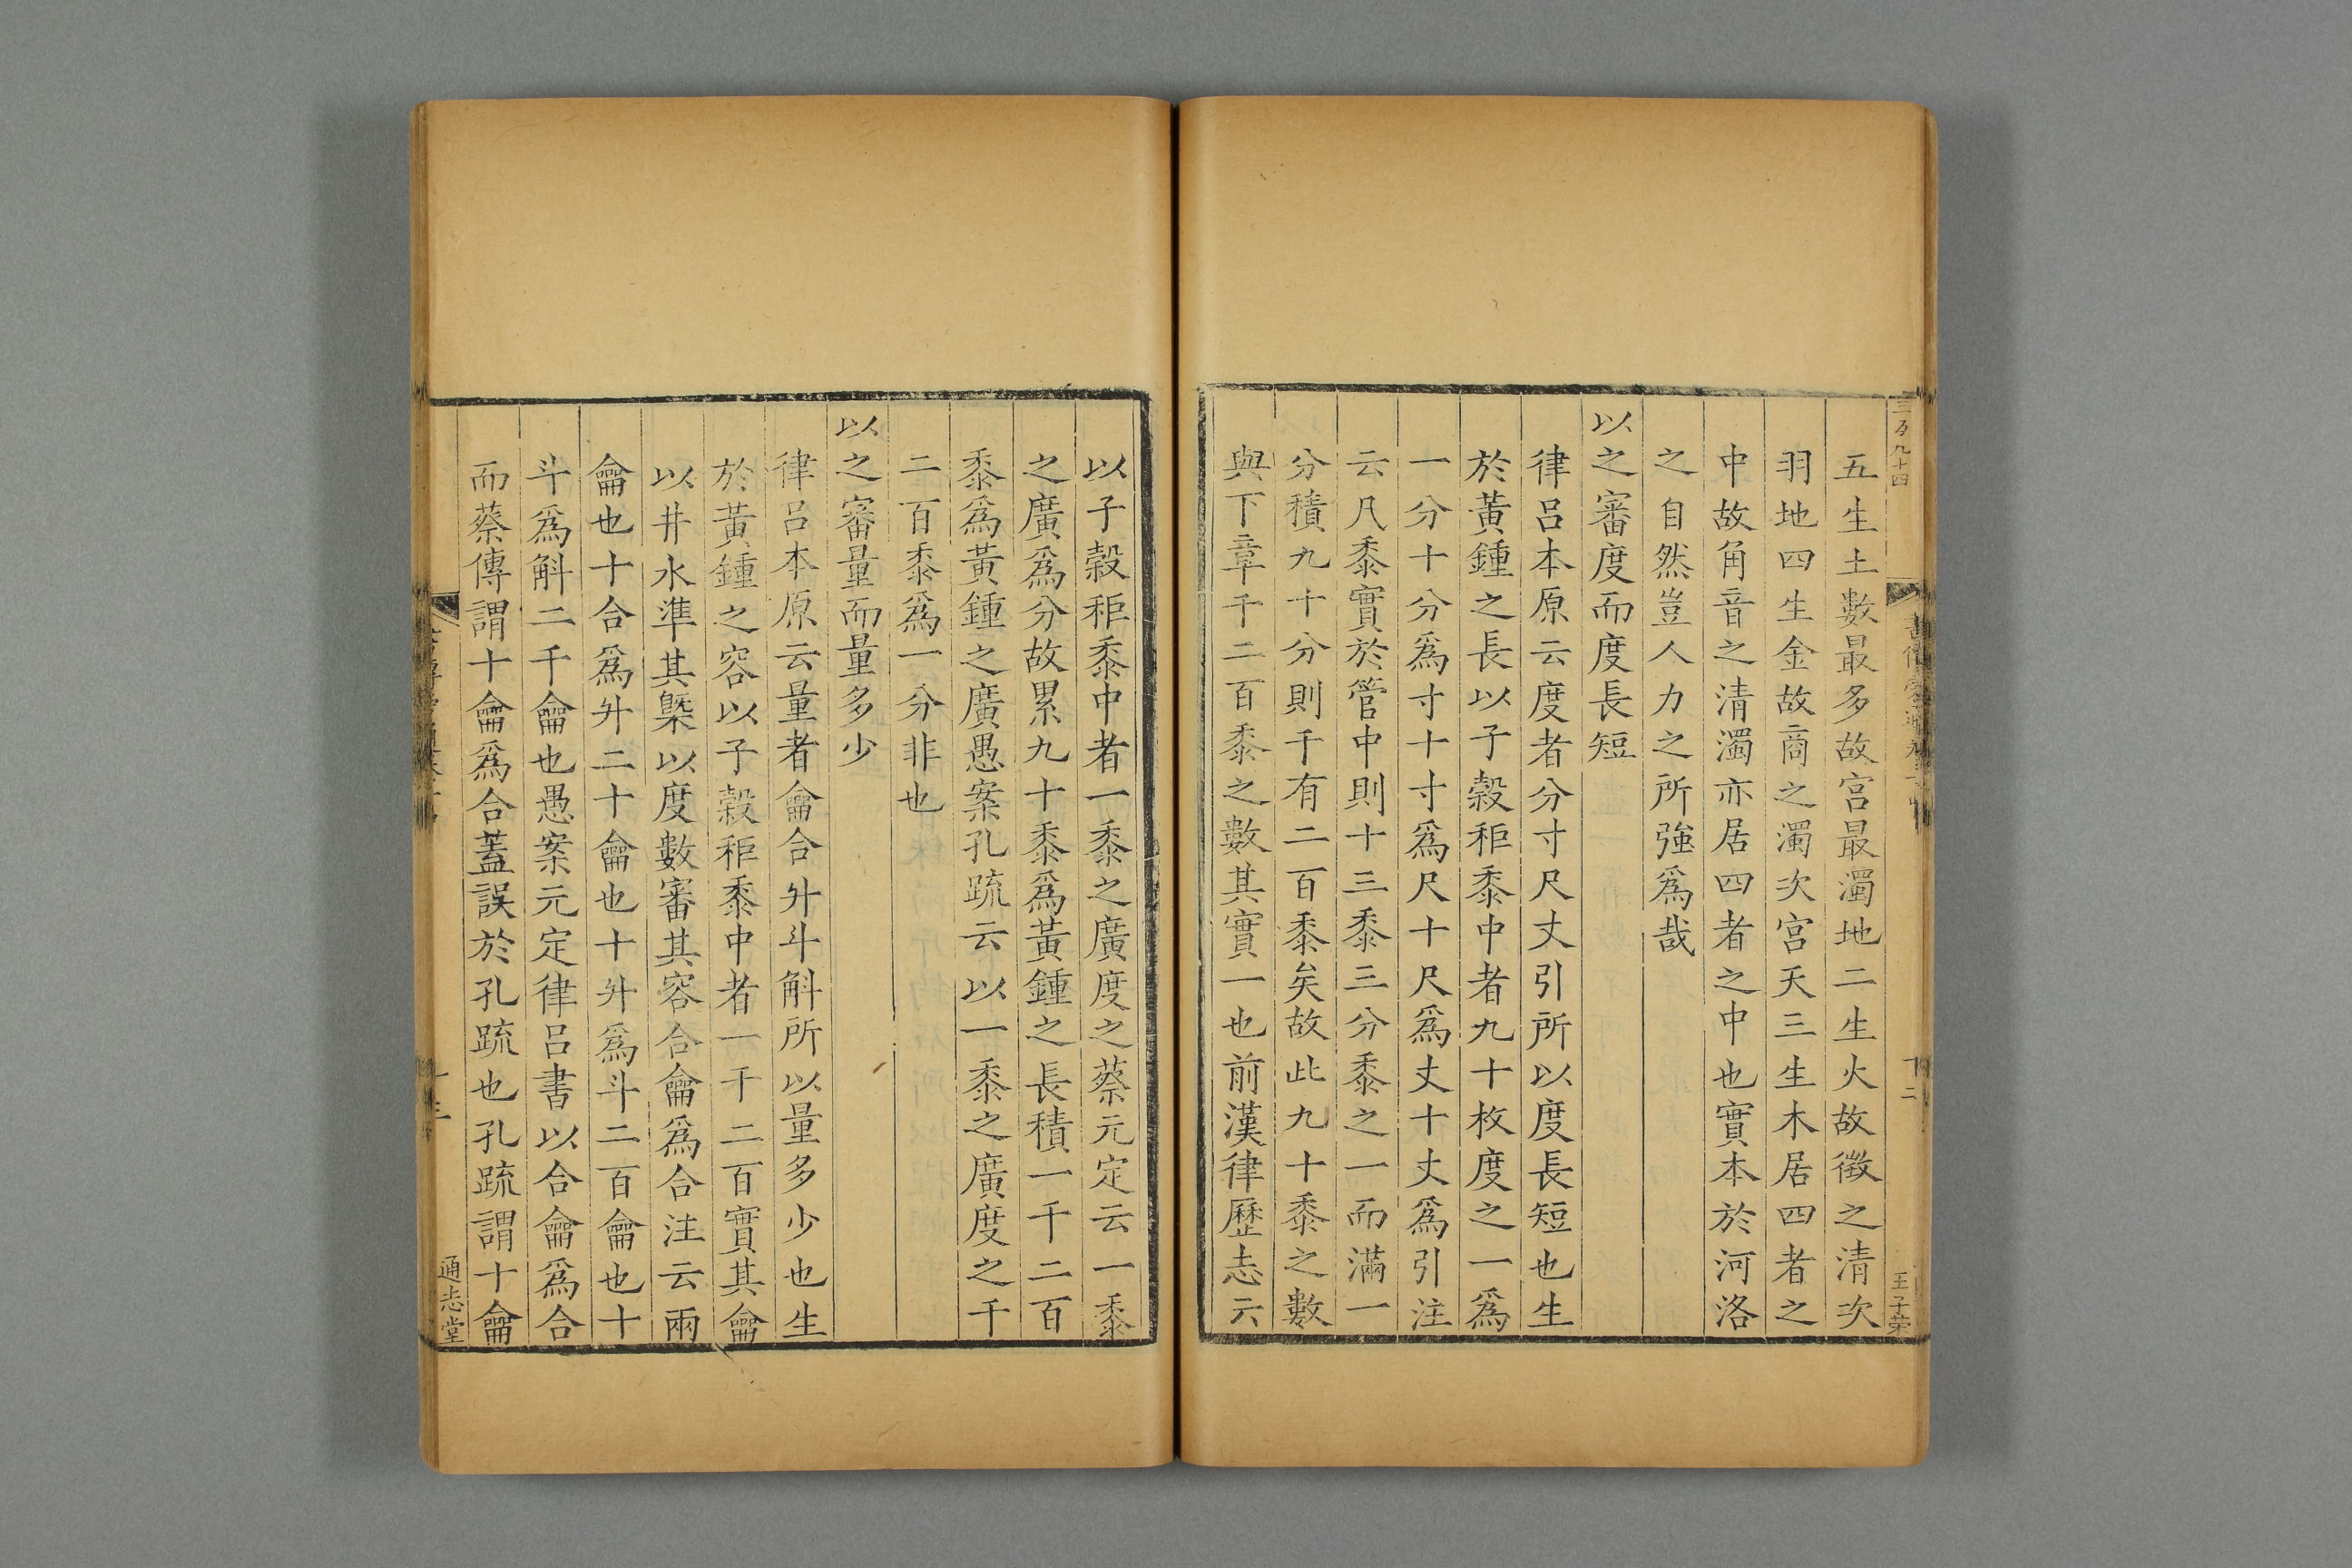 五生土數最多故宫最濁地二生火故徵之清次
羽地四生金故商之濁次宫天三生木居四者之
中故角音之清濁亦居四者之中也實本於河洛
之自然豈人力之所強爲哉
以之審度而度長短
律呂本原云度者分寸尺丈引所以度長短也生
於黃鍾之長以子穀秬黍中者九十枚度之一爲
一分十分爲寸十寸爲尺十尺爲丈十丈爲引注
云凡黍實於管中則十三黍三分黍之一而滿一
分積九十分則千有二百黍矣故此九十黍之數
與下章千二百黍之數其實一也前漢律歷志六
王子荣
以子穀秬黍中者一黍之廣度之蔡元定云一黍
之廣爲分故累九十黍爲黃鍾之長積一千二百
黍爲黃鍾之廣愚案孔疏云以一黍之廣度之千
二百黍爲一分非也
以之審量而量多少
律呂本原云量者龠合升斗斛所以量多少也生
於黃鍾之容以子穀秬黍中者一千二百實其龠
以井水準其槩以度數審其容合龠爲合注云兩
龠也十合爲升二十龠也十升爲斗二百龠也十
斗爲斛二千龠也愚案元定律呂書以合龠爲合
而蔡傳謂十龠爲合蓋誤於孔疏也孔疏謂十龠
通志堂